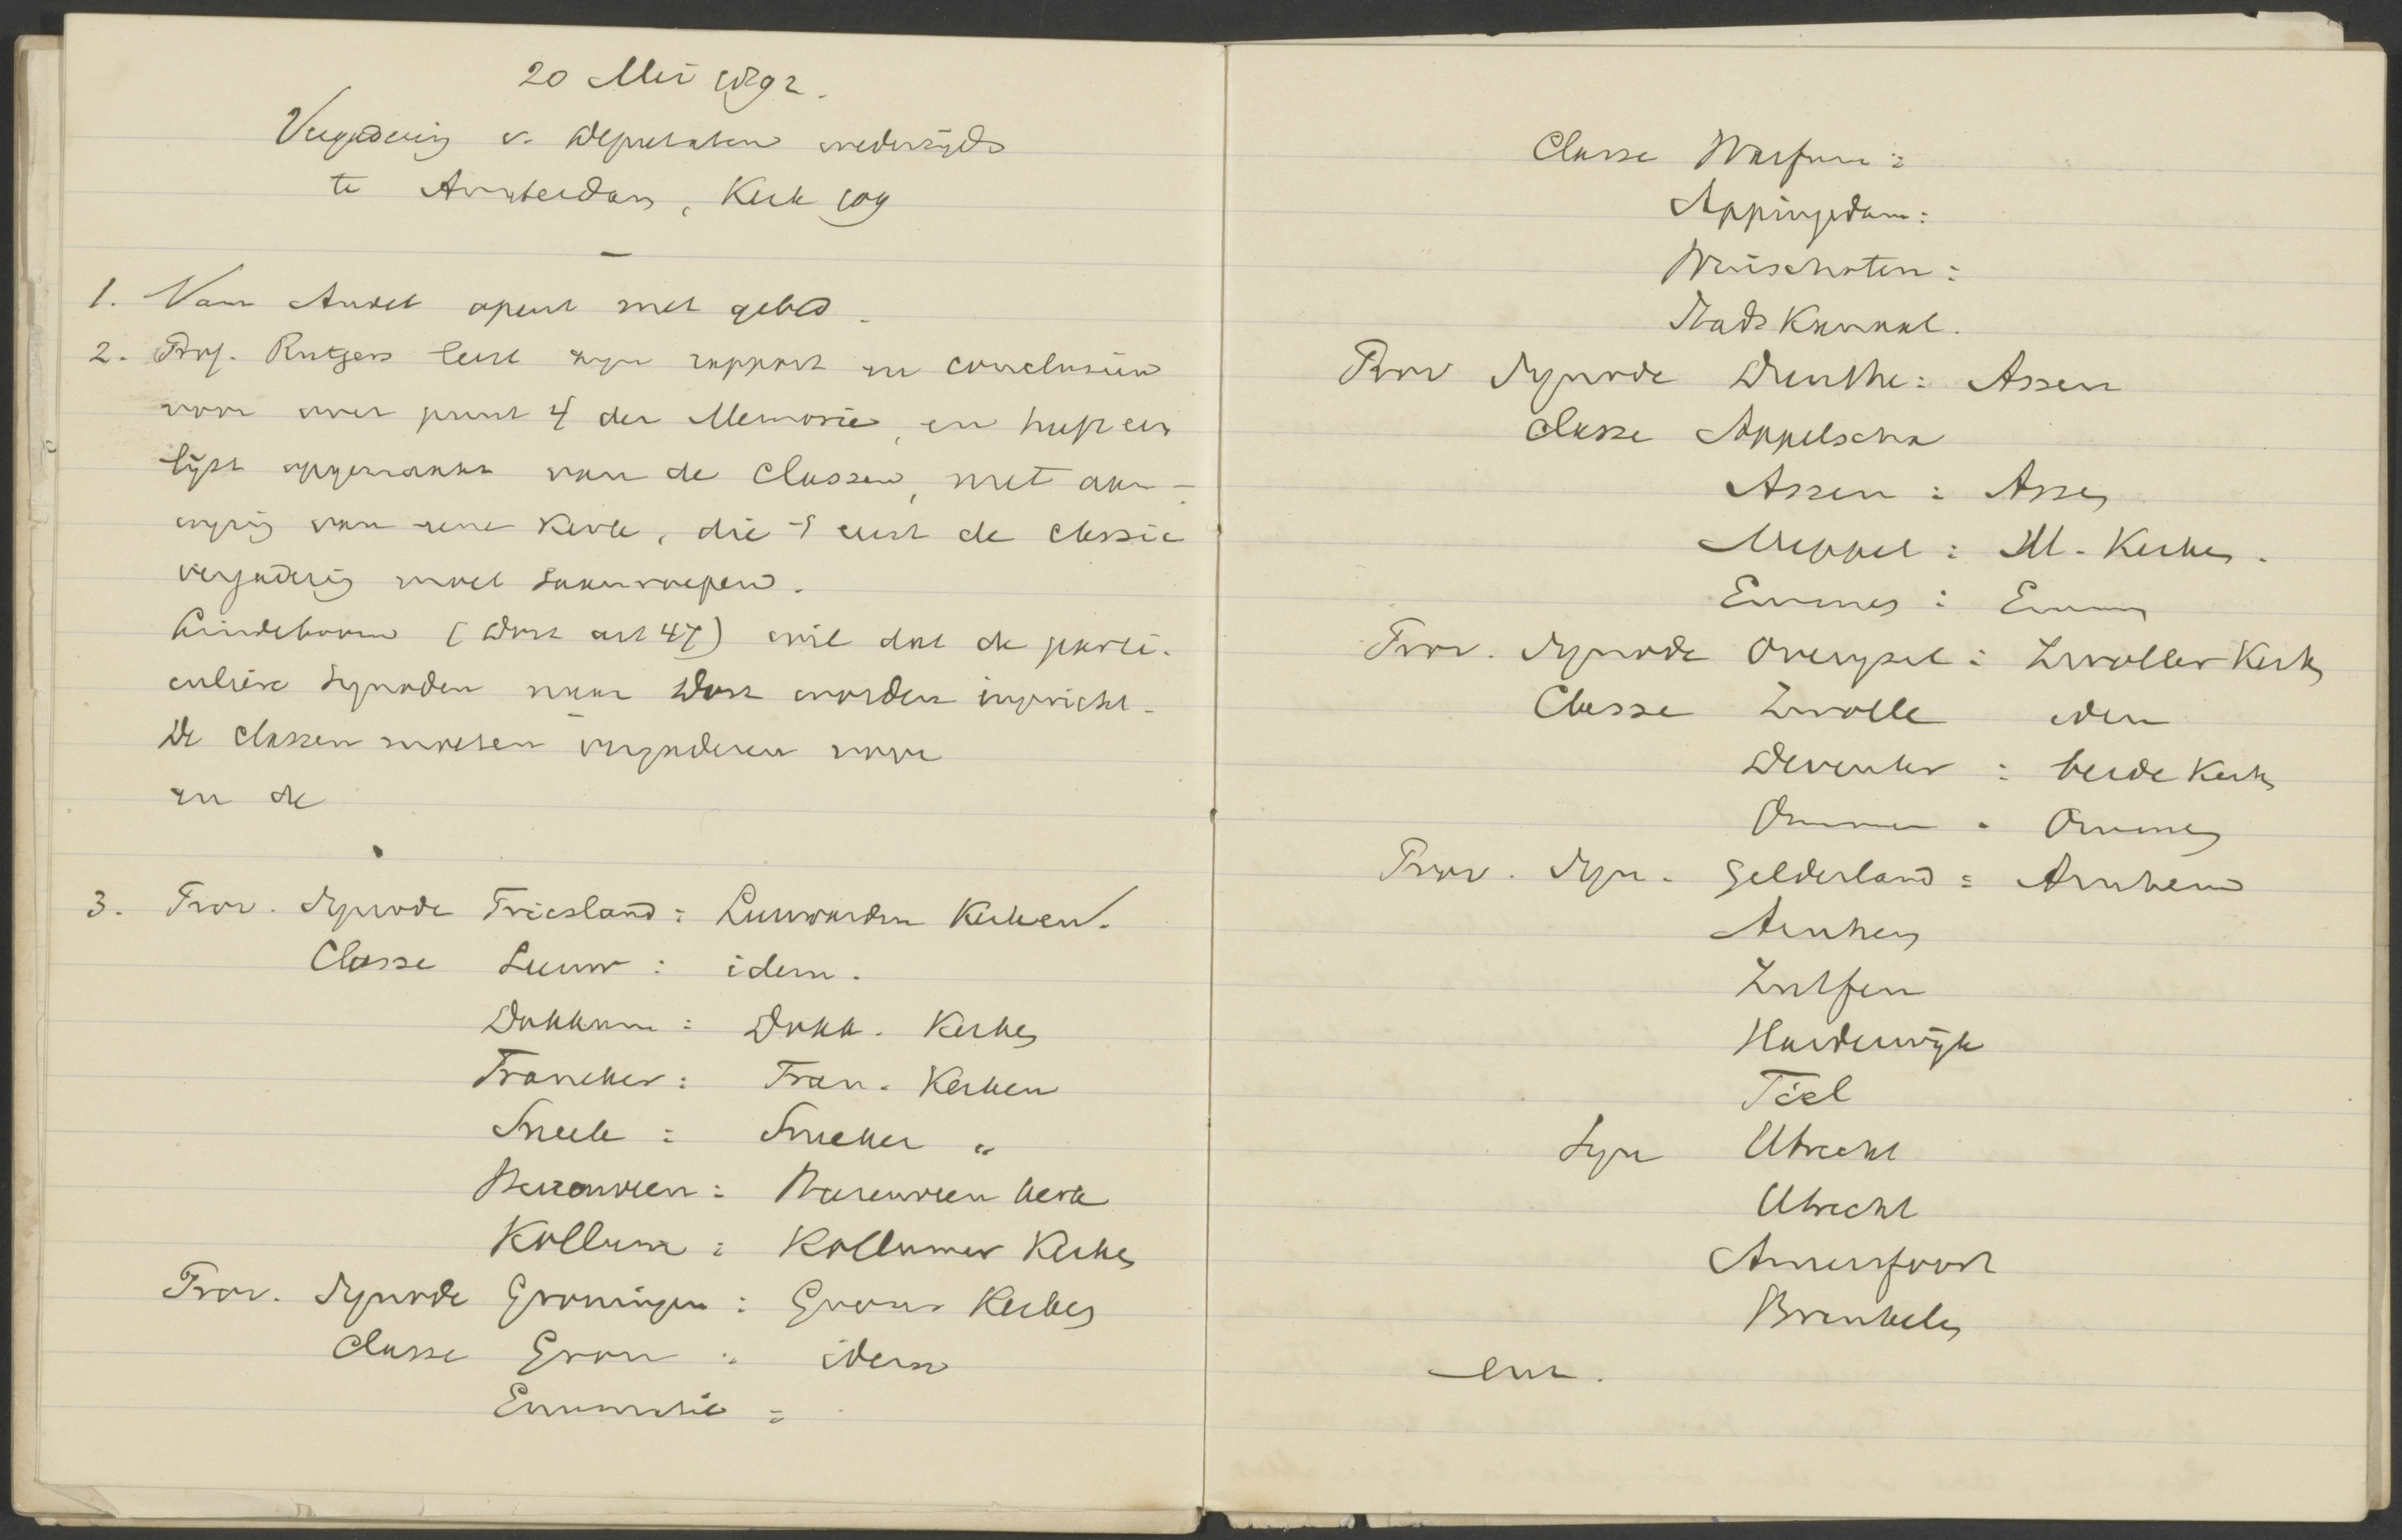 20 Mei 1892.
Vergadering v. Deputaten wederzijds
te Amsterdam, Kerk 109
1. Van Andel opent met gebed.
2. Prof. Rutgers leest zijn rapport en conclusiën
voor over punt 4 der Memorie, en heeft een
lijst opgemaakt van de Classen, met aan-
wijzing van eene Kerk, die 't eerst de classic
vergadering moet samenroepen.
Lindeboom (Dort art 47) wil dat de parti-
culiere Synoden naar Dort worden ingericht.
De classen moeten vergaderen voor
en de
3. Prov. Synode Friesland: Leeuwarden Kerken.
Classe Leeuw: idem.
Dokkum: Dokk. Kerken
Franeker: Fran. Kerken
Sneek: Sneeker "
Heerenveen: Heerenveen kerk
Kollum: Kollumer Kerken
Prov. Synode Groningen: Groner Kerken
Classe Gron: idem
Enumatil:
Classe Warfum:
Appingedam:
Winschoten:
Stads Kanaal.
Prov Synode Drenthe: Assen
Classe Appelscha
Assen: Assen
Meppel: M. Kerken.
Emmen: Emmen
Prov. Synode Overijsel: Zwoller Kerk
Classe Zwolle idem
Deventer: beide Kerken
Ommen. Ommen
Prov. Syn. Gelderland: Arnhem
Arnhem
Zutfen
Harderwijk
Tiel
Syn Utrecht
Utrecht
Amersfoort
Breukelen
enz.